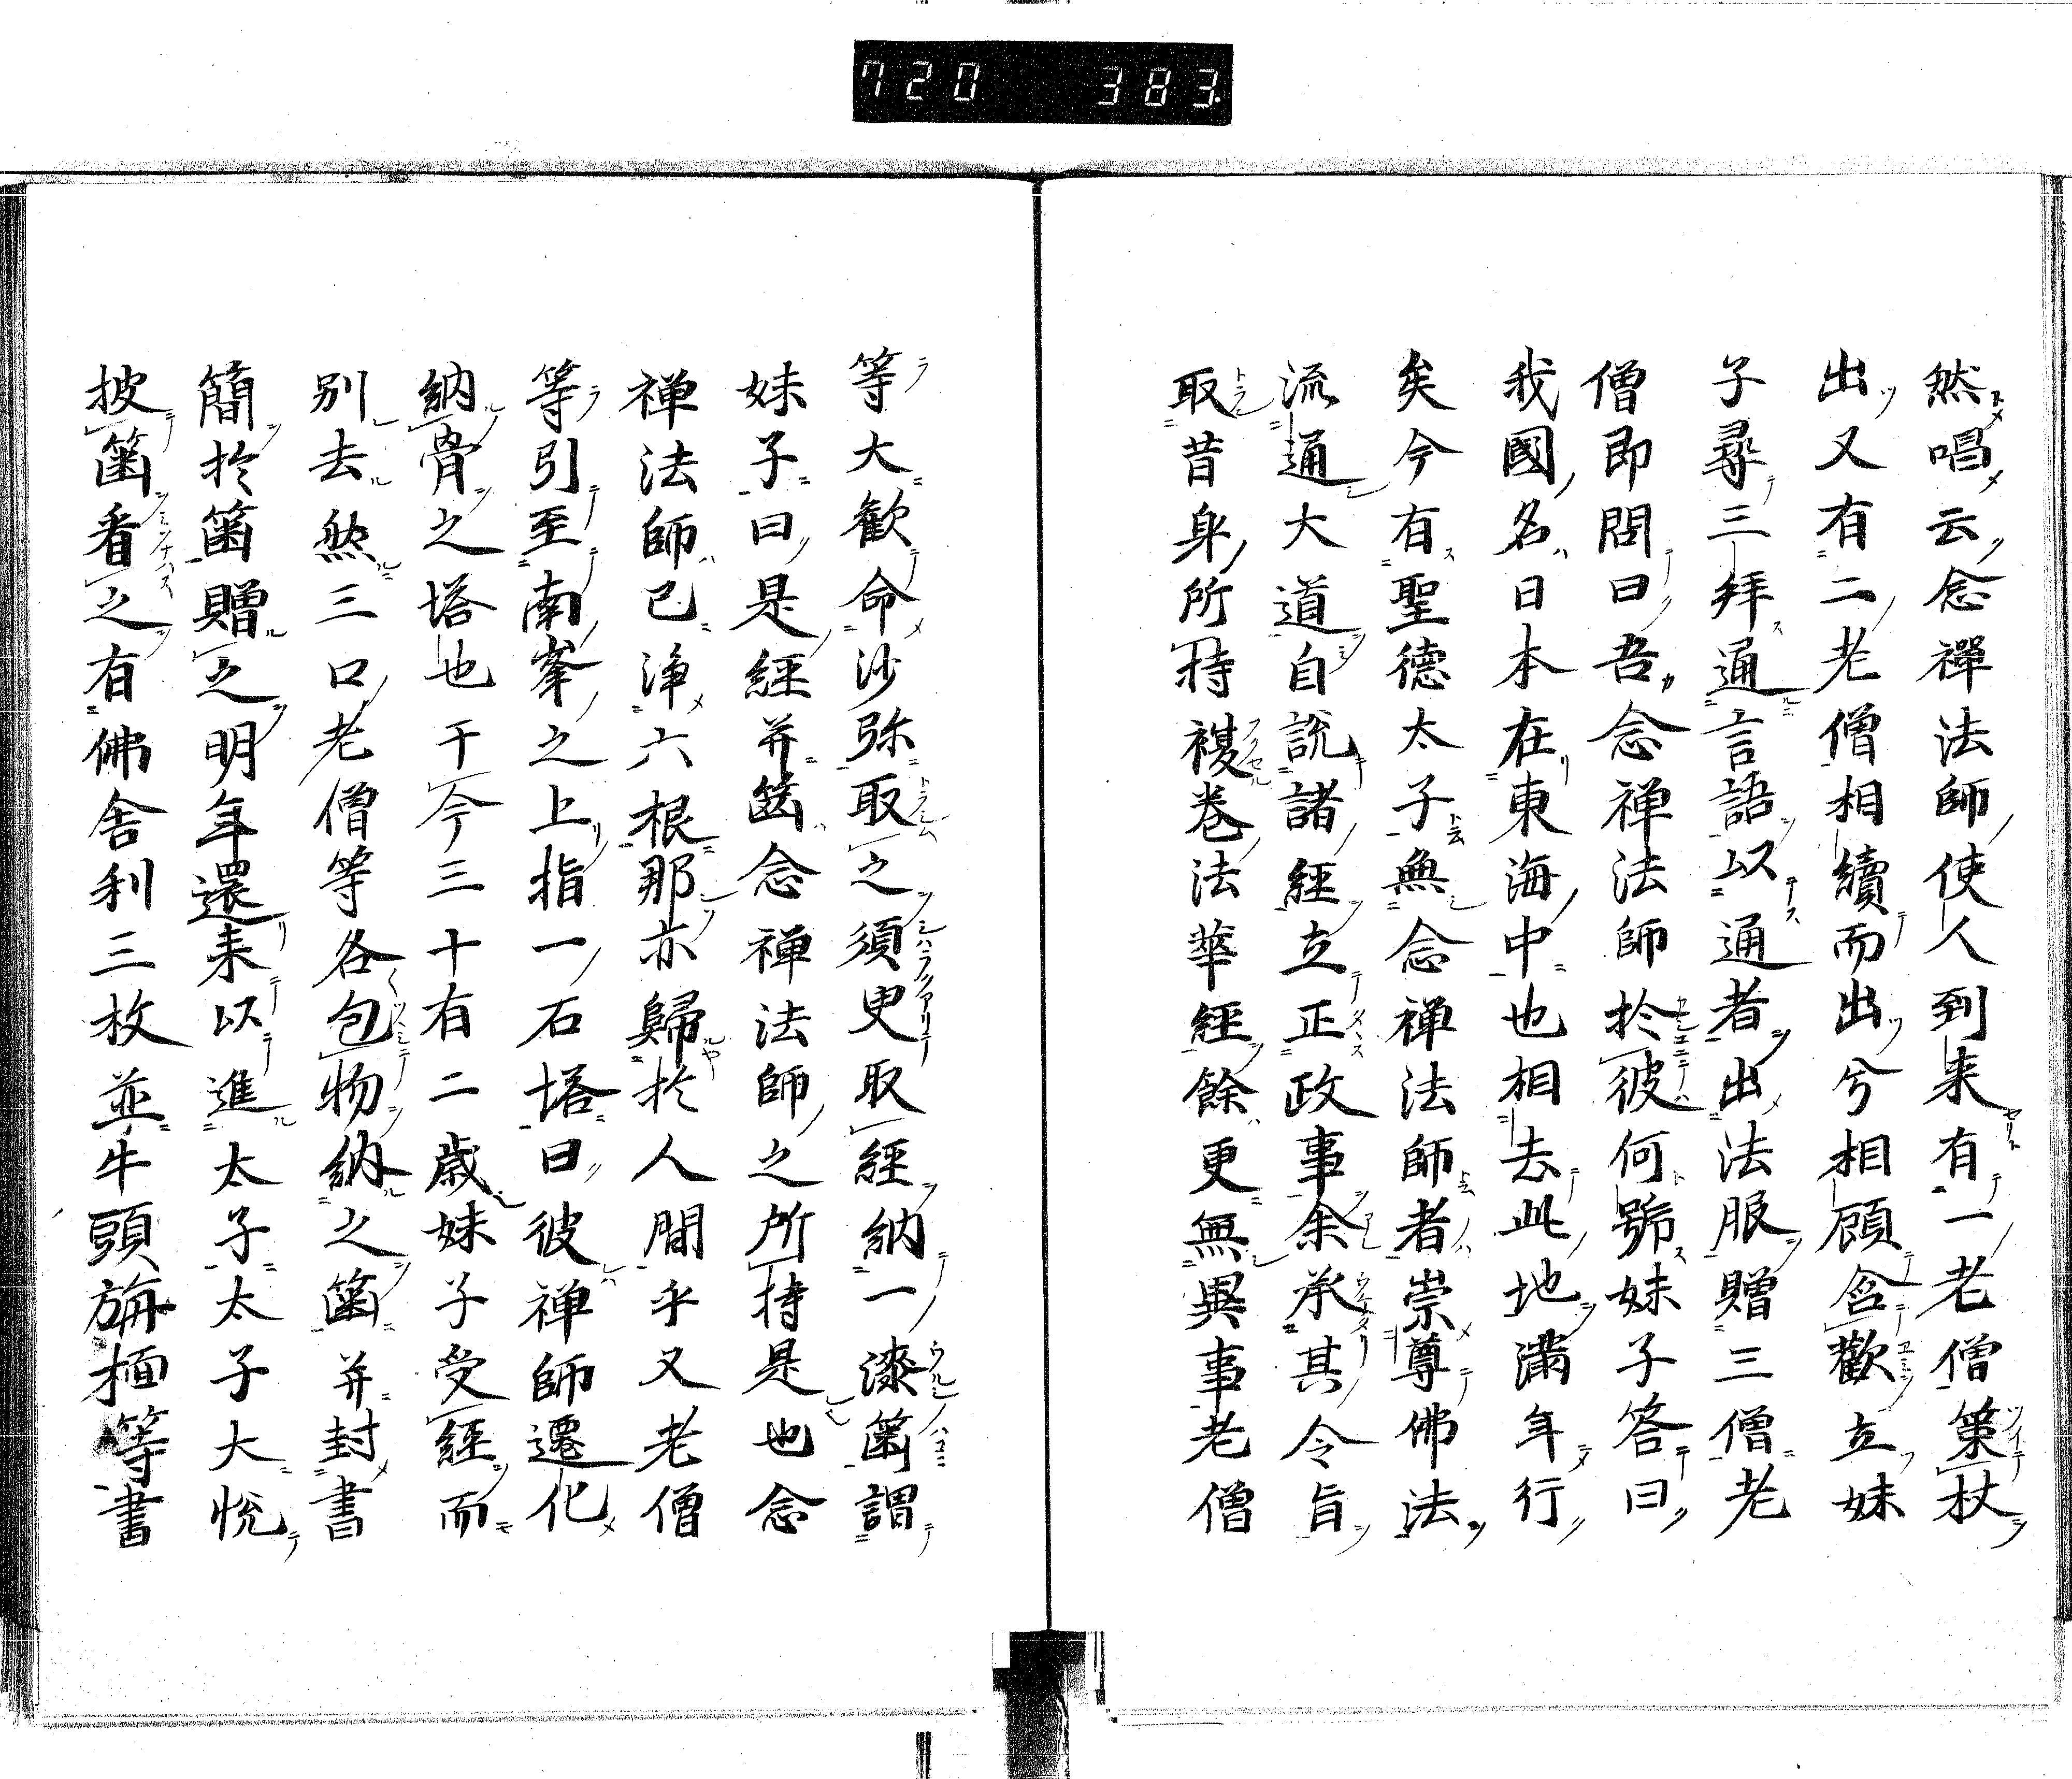 720 383
然唱云念禪法師使人到来有一老僧策杖
出又有二老僧相續而出兮相顧含歡立妹
子尋三拜通言語以通者出法服贈三僧老
僧即問曰吾念禅法師於彼何号妹子答曰
我國名日本在東海中也相去此地滿年行
矣今有聖徳太子無念禅法師者崇尊佛法
流通大道自説諸經立正政事余承其令旨
取昔身所持複卷法華經餘更無異事老僧
等大歓命沙弥取之須臾取經納一漆箇謂
妹子曰是經并箇念禅法師之所持是也念
禅法師已浄六根那亦歸於人間乎又老僧
等引至南峯之上指一石塔曰彼禅師遷化
納骨之塔也于今三十有二歳妹子受經而
別去然三口老僧等各包物納之箇并封書
簡於箇贈之明年還来以進太子太子大悦
披箇看之有佛舎利三枚並牛頭旃等書